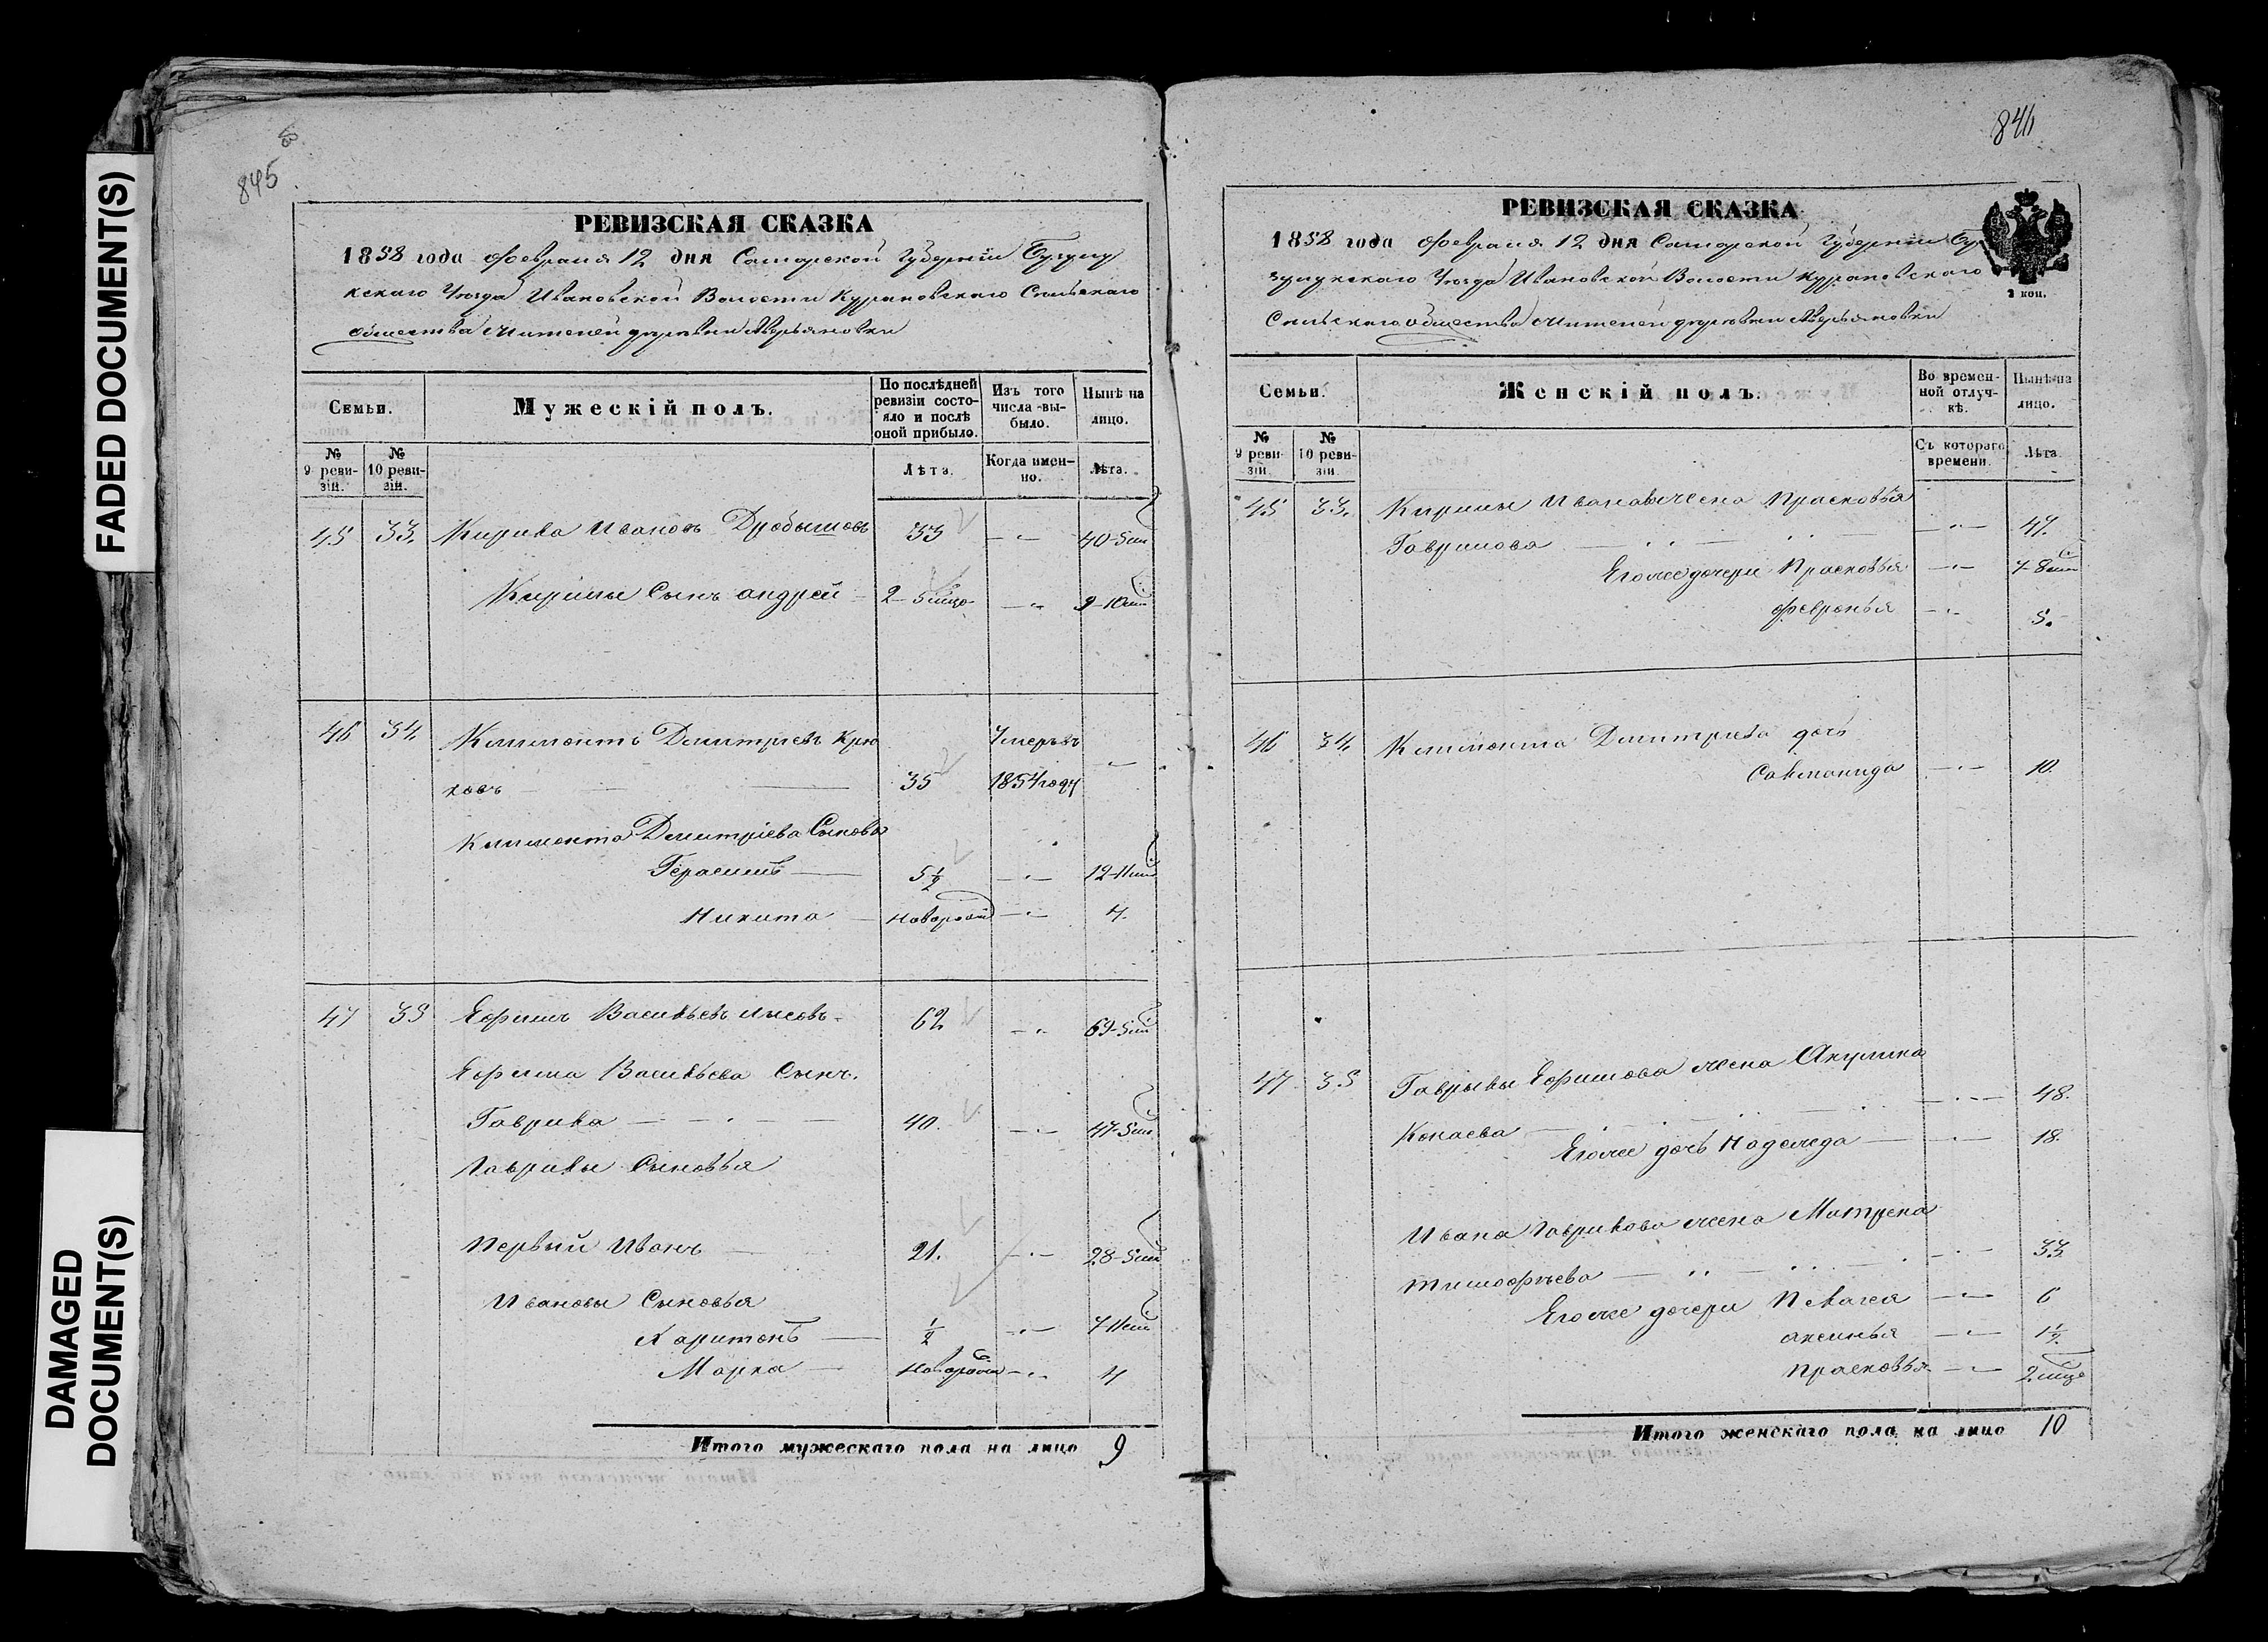 FADED DOCUMENT(S)
DAMAGED
DOCUMENT(S)
845
РЕВИЗСКАЯ СКАЗКА
1858 года Февраля 12 дня Самарской Губернии Бузулу
кскаго Уѣзда Ивановской Волости Курановскаго Сельскаго
общества жителей деревни Аверьяновки
Семьи.
Мужескій полъ.
По послѣдней ревизіи состояло и послѣ оной прибыло.
Изъ того числа выбыло.
Нынѣ на лицо.
№ 9 ревизіи.
№ 10 ревизіи.
Лѣта.
Когда именно.
Лѣта.
45 33. Кирила Ивановъ Дробышовъ 33 40-5
Кирилы Сынъ андрей 2-5 9-10
46 34 Климонтъ Дмитріевъ Крю Умеръ въ
ковъ 35 1854 году
Климонта Дмитріева Сыновья
Герасимъ 5 1/2 12-11
Никита 4.
47 35 Ефимъ Васильевъ 62 69-5
Ефима Васильева Сынъ.
Гаврила 40. 47-5
Гаврилы Сыновья
Первый Иванъ 21. 28-5
Ивановы Сыновья
Харитонъ 1/2 7-11
Марка 4
Итого мужескаго пола на лицо 9
846
РЕВИЗСКАЯ СКАЗКА
1858 года Февраля 12 дня Самарской Губернии Бу
зулукскаго Уѣзда Ивановской Волости Курановскаго
Сельскаго общества жителей деревни Аверьяновки
2 коп.
Семьи.
Женскій полъ.
Во временной отлучкѣ.
Нынѣ на лицо.
№ 9 ревизіи.
№ 10 ревизіи.
Съ котораго времени.
Лѣта.
45 33. Кирилы Иванова жена Прасковья
Гаврилова 47.
Его же дочери Прасковья 7-8
Февронья 5.
46 34. Климонта Дмитріева дочь
Саломанида 10.
47 35 Гаврилы Ефимова жена Акулина
48.
Его же дочь Надежда 18.
Ивана Гаврилова жена Матрена
Тимофѣева 33
Его же дочери Пелагея 6
аксинья 1 1/2.
Прасковья 2
Итого женскаго пола на лицо 10